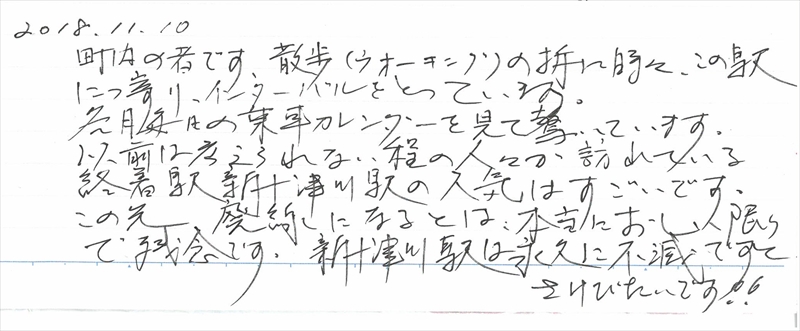 2018.11.10
町内の者です。散歩(ウオーキング)の折に時々、この駅
につ寄り、インターバルをとっています。
各月毎日の乗車カレンダーを見て驚いています。
以前は考えられない程の人々が訪れている
終着駅新十津川駅の人気はすごいです。
この先 廃線になるとは、本当におしい限り
で残念です。新十津川駅は永久に不滅ですて
さけびたいです!!